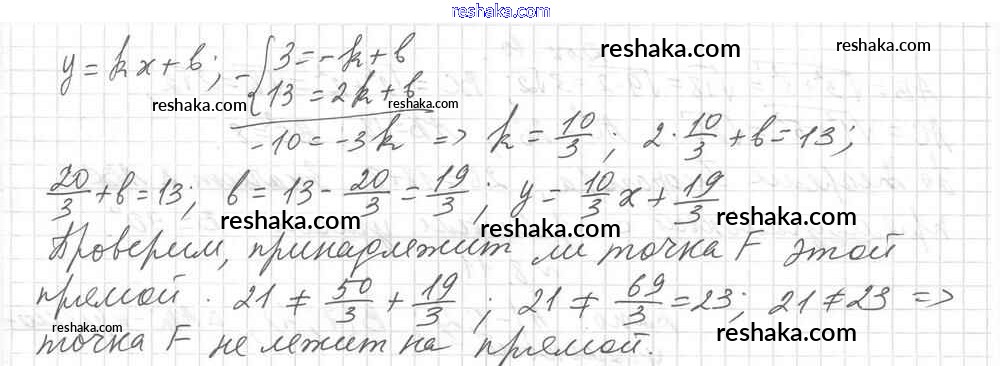 reshaka.com
y = kx + b; - { 3 = -k + b reshaka.com
reshaka.com 13 = 2k + b reshaka.com reshaka.com
-10 = -3k => k = 10/3 ; 2 · 10/3 + b = 13;
20/3 + b = 13; b = 13 - 20/3 = 19/3 ; y = 10/3 x + 19/3
reshaka.com reshaka.com
Проверим, принадлежит ли точка F этой
reshaka.com
прямой. 21 ≠ 50/3 + 19/3 ; 21 ≠ 69/3 = 23; 21 ≠ 23 =>
reshaka.com reshaka.com reshaka.com
точка F не лежит на прямой.